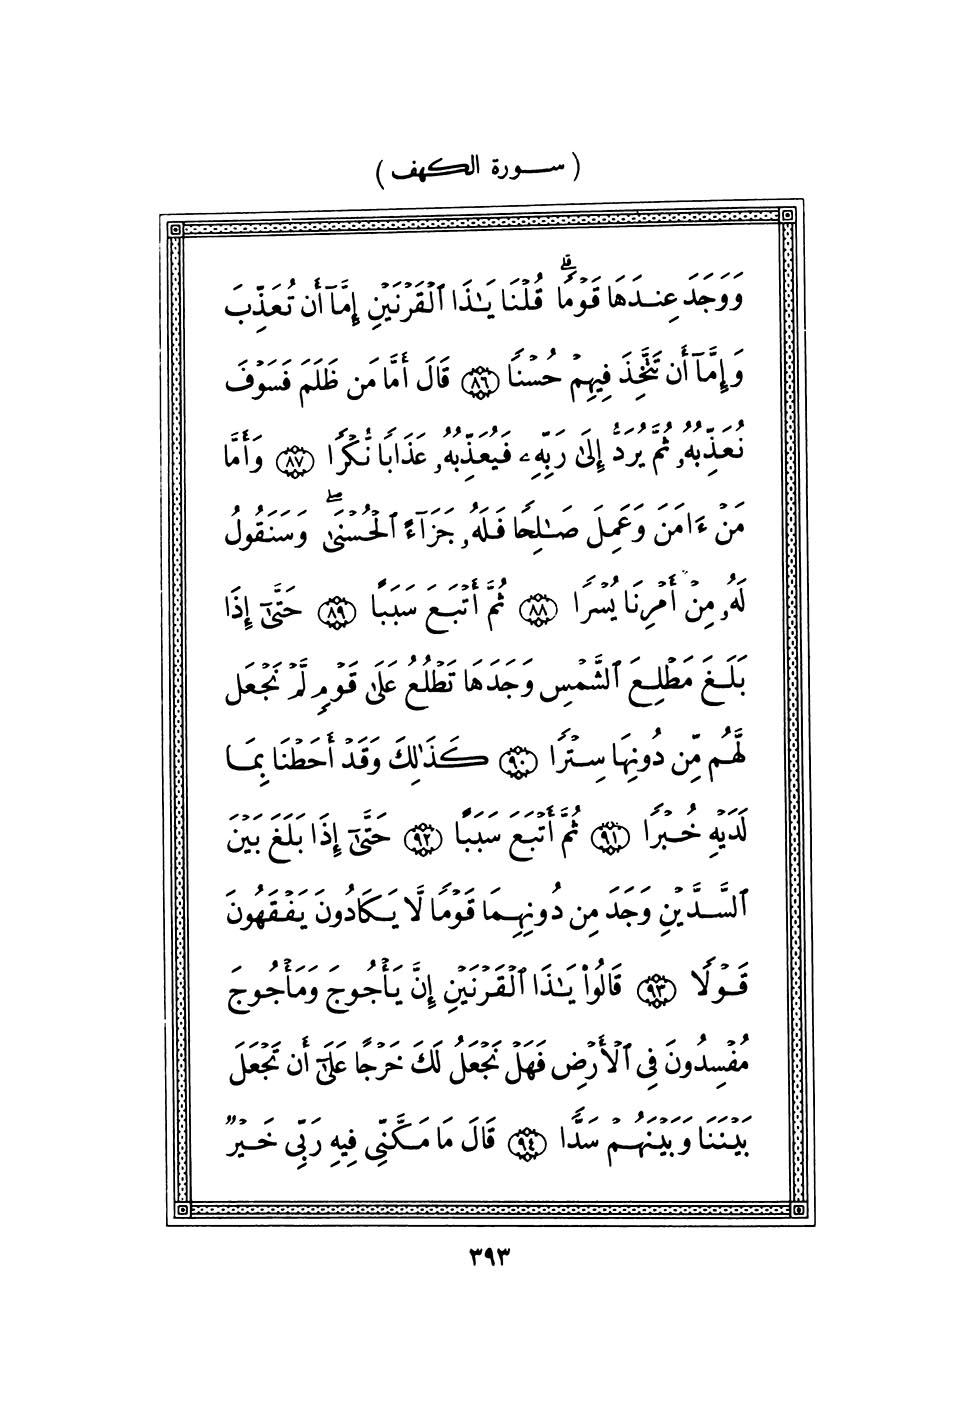 ( سورة الكهف )
وَوَجَدَ عِندَهَا قَوْمًاۗ قُلْنَا يَـٰذَا ٱلْقَرْنَيْنِ إِمَّآ أَن تُعَذِّبَ
وَإِمَّآ أَن تَتَّخِذَ فِيهِمْ حُسْنًا ٨٦ قَالَ أَمَّا مَن ظَلَمَ فَسَوْفَ
نُعَذِّبُهُۥ ثُمَّ يُرَدُّ إِلَىٰ رَبِّهِۦ فَيُعَذِّبُهُۥ عَذَابًا نُّكْرًا ٨٧ وَأَمَّا
مَنْ ءَامَنَ وَعَمِلَ صَـٰلِحًا فَلَهُۥ جَزَآءً ٱلْحُسْنَىٰۖ وَسَنَقُولُ
لَهُۥ مِنْ أَمْرِنَا يُسْرًا ٨٨ ثُمَّ أَتْبَعَ سَبَبًا ٨٩ حَتَّىٰٓ إِذَا
بَلَغَ مَطْلِعَ ٱلشَّمْسِ وَجَدَهَا تَطْلُعُ عَلَىٰ قَوْمٍ لَّمْ نَجْعَل
لَّهُم مِّن دُونِهَا سِتْرًا ٩٠ كَذَٰلِكَ وَقَدْ أَحَطْنَا بِمَا
لَدَيْهِ خُبْرًا ٩١ ثُمَّ أَتْبَعَ سَبَبًا ٩٢ حَتَّىٰٓ إِذَا بَلَغَ بَيْنَ
ٱلسَّدَّيْنِ وَجَدَ مِن دُونِهِمَا قَوْمًا لَّا يَكَادُونَ يَفْقَهُونَ
قَوْلًا ٩٣ قَالُوا۟ يَـٰذَا ٱلْقَرْنَيْنِ إِنَّ يَأْجُوجَ وَمَأْجُوجَ
مُفْسِدُونَ فِى ٱلْأَرْضِ فَهَلْ نَجْعَلُ لَكَ خَرْجًا عَلَىٰٓ أَن تَجْعَلَ
بَيْنَنَا وَبَيْنَهُمْ سَدًّا ٩٤ قَالَ مَا مَكَّنِّى فِيهِ رَبِّى خَيْرٌ
٣٩٣